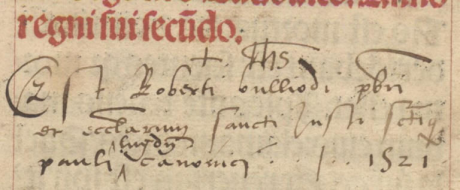 regni sui secūdo.
+ Jhs
Est Roberti bulliodi pb̄ri
et eccl̄arum sancti Justi sctīq̄
pauli lugdn̄ canonici . . | . 1521